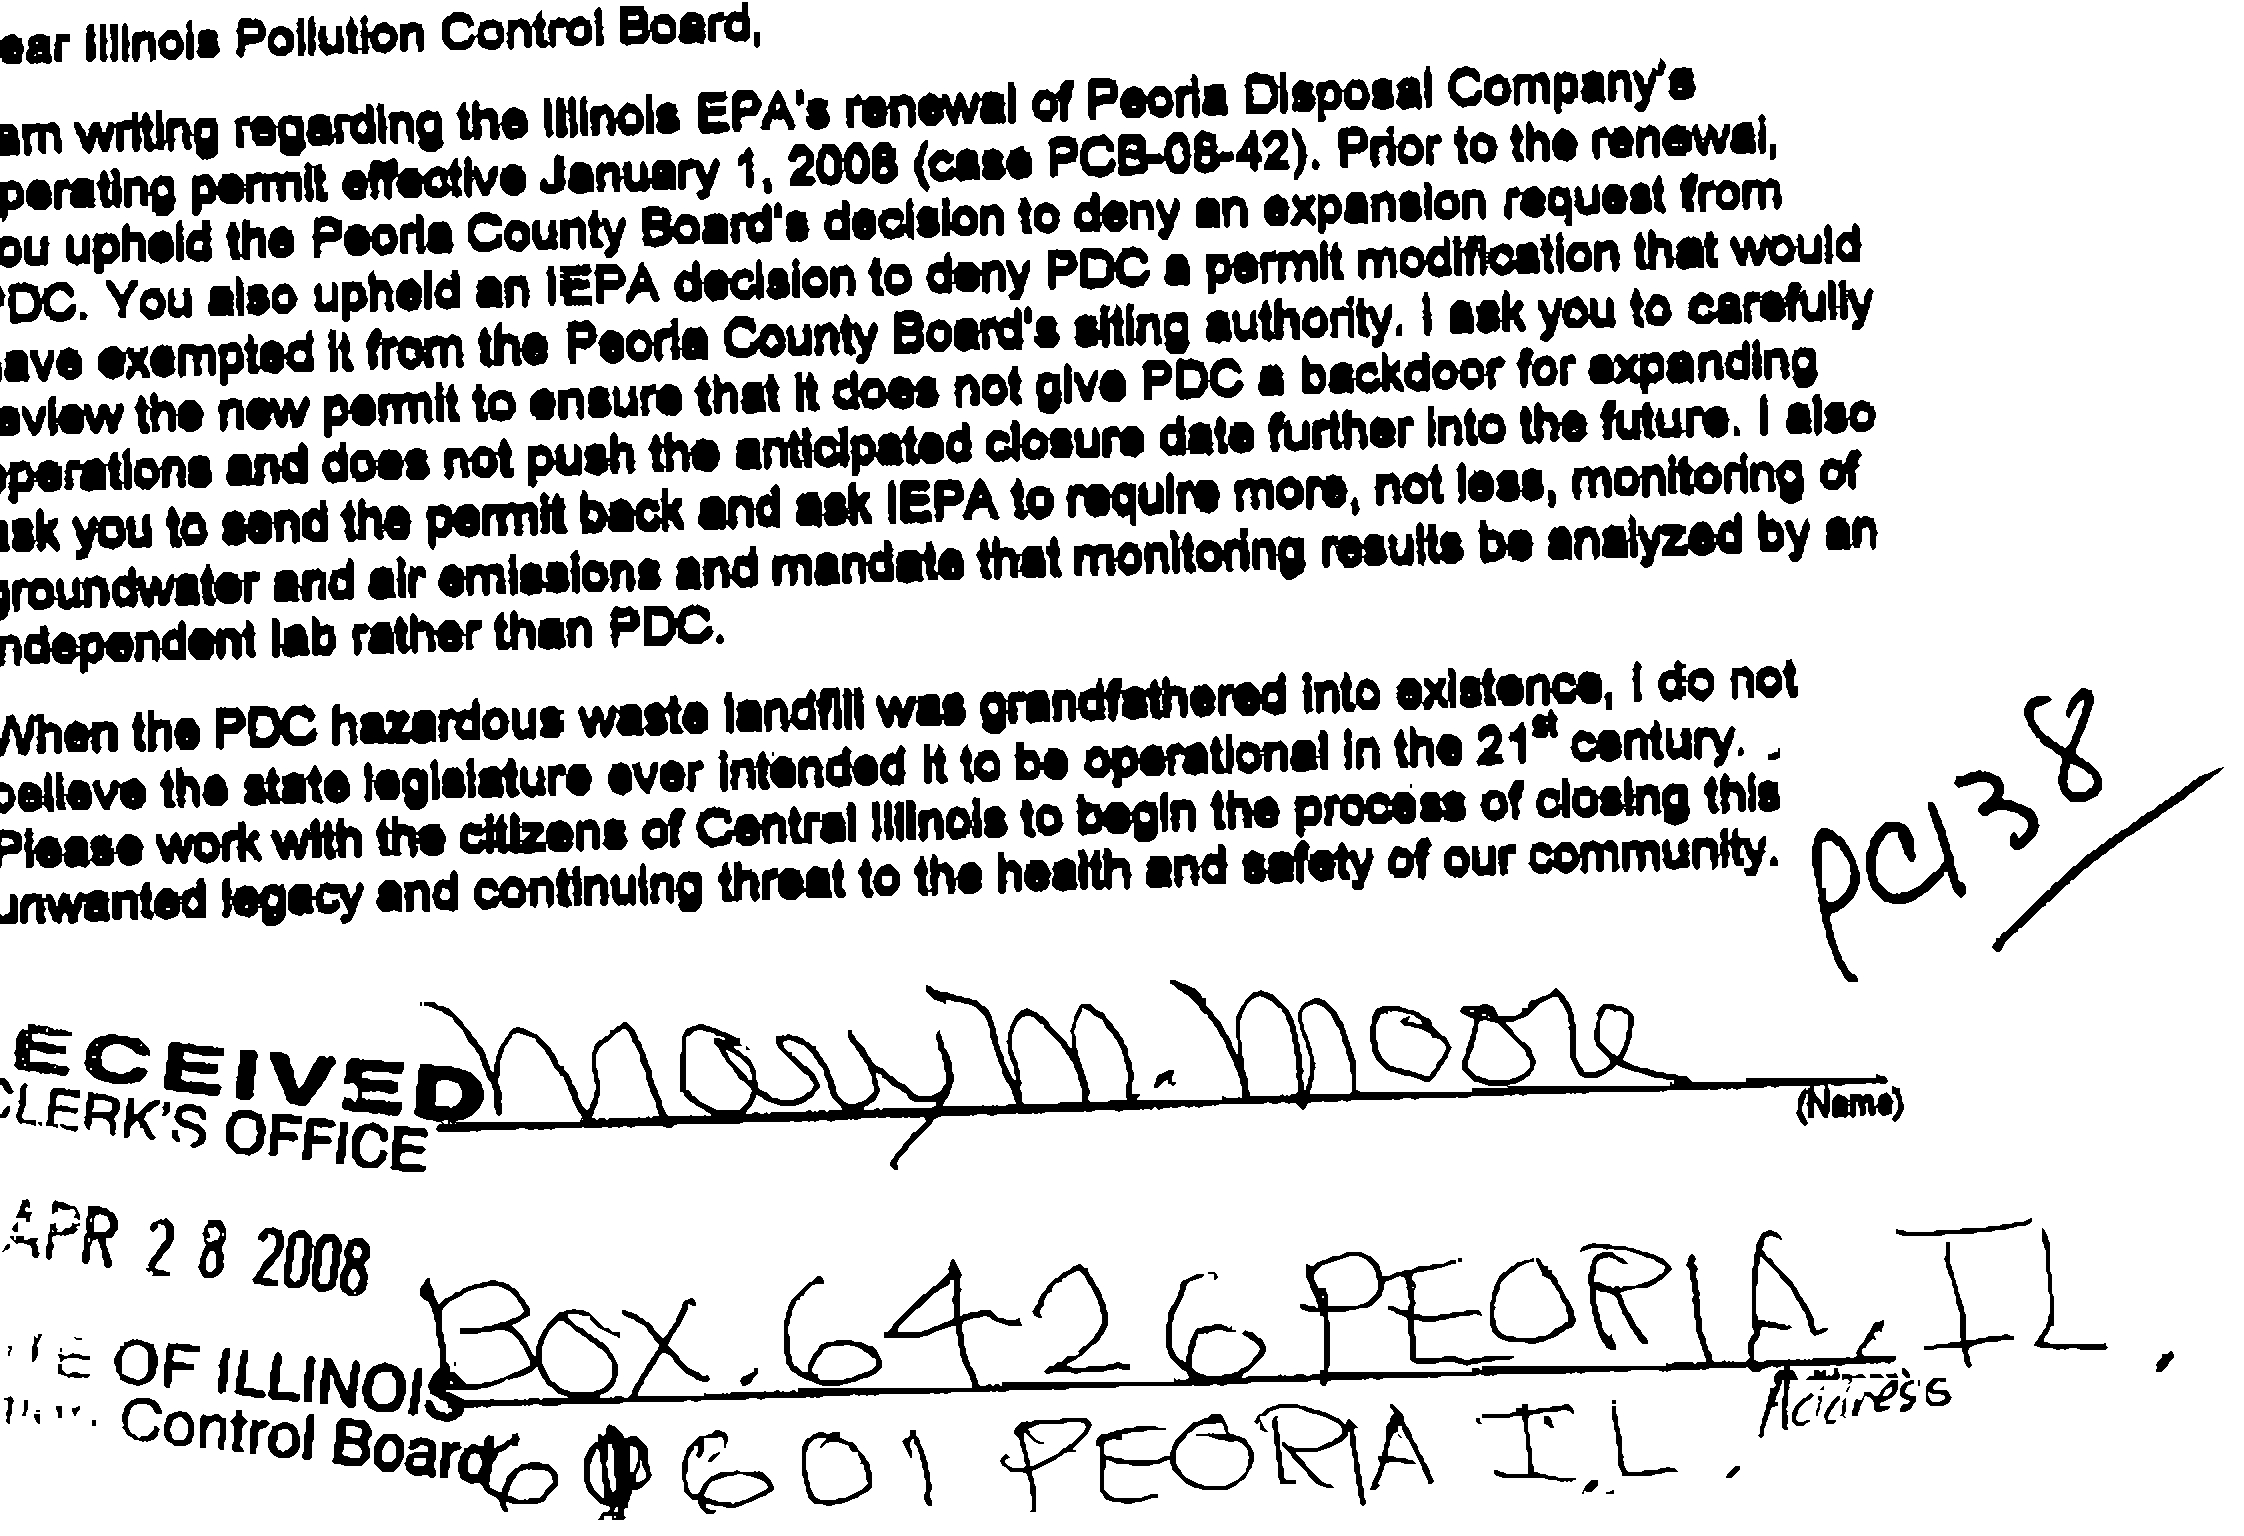 ear Illinois Pollution Control Board,
am writing regarding the Illinois EPA's renewal of Peoria Disposal Company's
perating permit effective January 1, 2008 (case PCB-08-42). Prior to the renewal,
ou upheld the Peoria County Board's decision to deny an expansion request from
PDC. You also upheld an IEPA decision to deny PDC a permit modification that would
ave exempted it from the Peoria County Board's siting authority. I ask you to carefully
eview the new permit to ensure that it does not give PDC a backdoor for expanding
operations and does not push the anticipated closure date further into the future. I also
ask you to send the permit back and ask IEPA to require more, not less, monitoring of
groundwater and air emissions and mandate that monitoring results be analyzed by an
ndependent lab rather than PDC.
When the PDC hazardous waste landfill was grandfathered into existence, I do not
believe the state legislature ever intended it to be operational in the 21st century.
Please work with the citizens of Central Illinois to begin the process of closing this
unwanted legacy and continuing threat to the health and safety of our community.
PC138
Mary M. Moore
(Name)
ECEIVED
CLERK'S OFFICE
APR 28 2008
Box. 6426 PEORIA. IL.
Address
TE OF ILLINOIS
Control Board
601 PEORIA I.L.